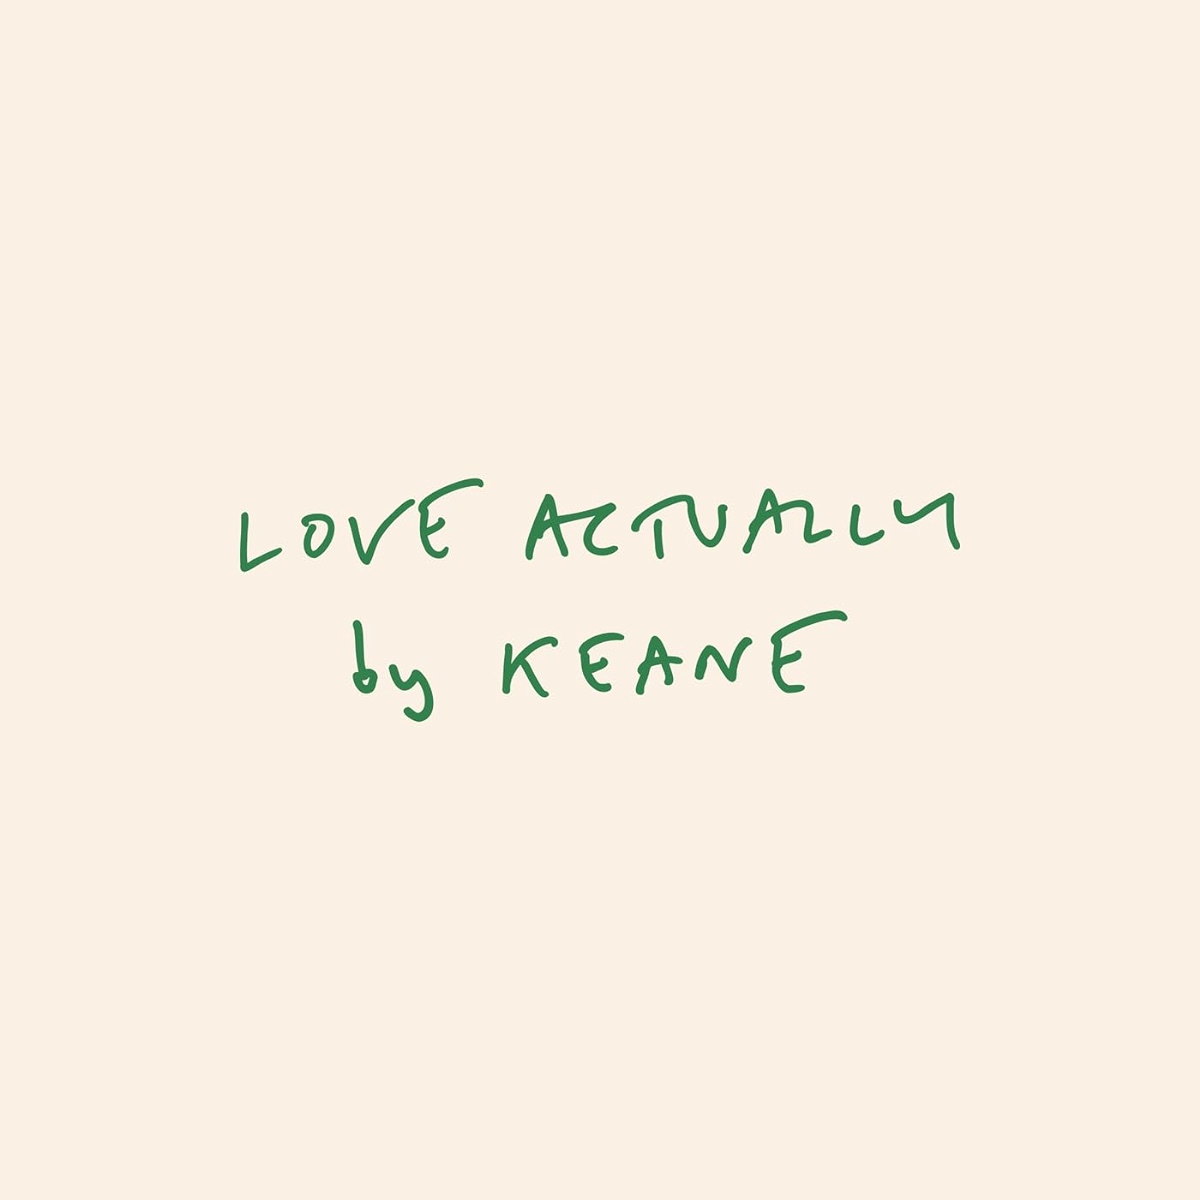 LOVE ACTUALLY
by KEANE